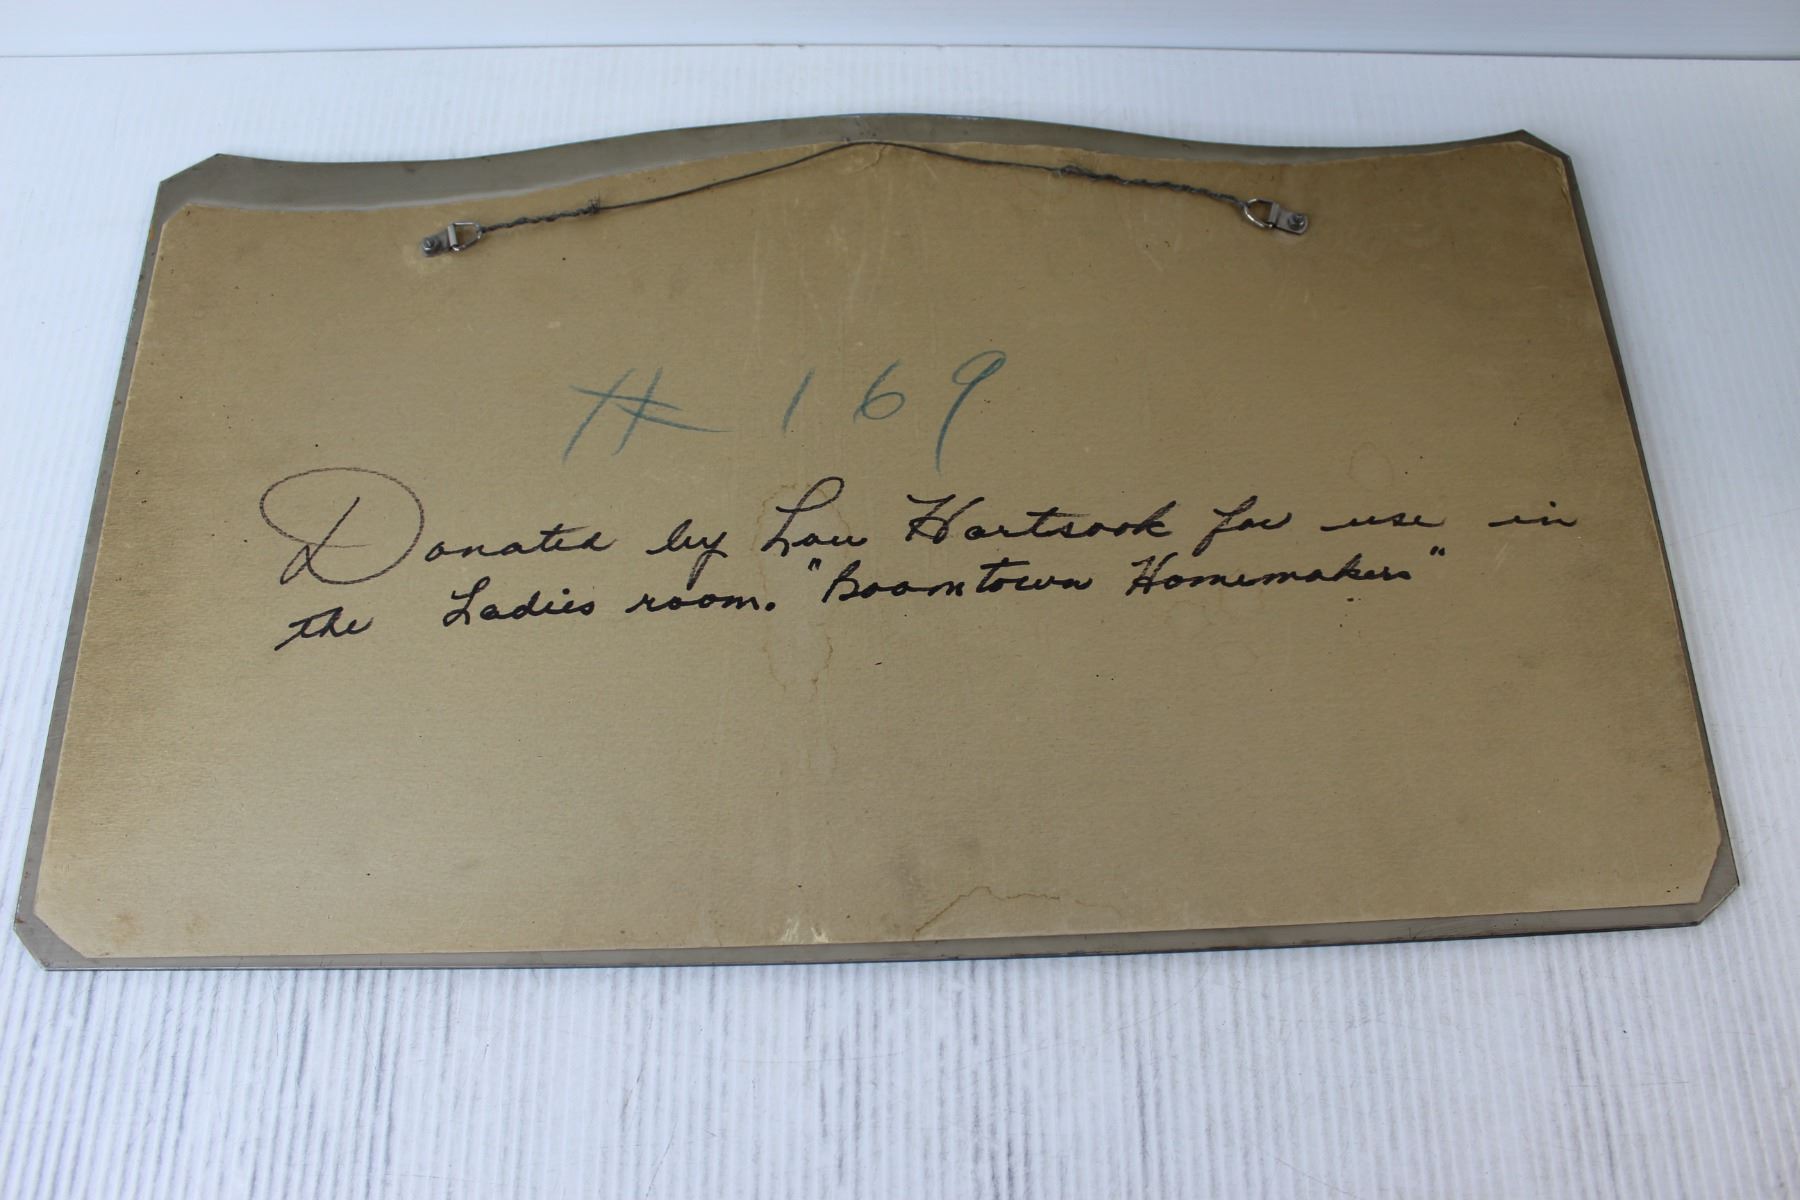 # 169
Donated by Lou Hartsook for use in
the Ladies room. "Boomtown Homemakers"